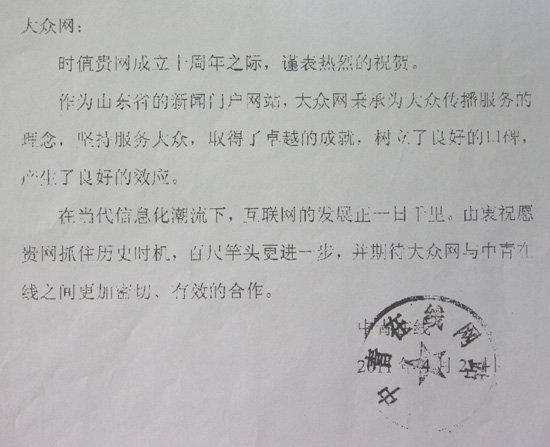 大众网：
时值贵网成立十周年之际，谨表热烈的祝贺。
作为山东省的新闻门户网站，大众网秉承为大众传播服务的
理念，坚持服务大众，取得了卓越的成就，树立了良好的口碑，
产生了良好的效应。
在当代信息化潮流下，互联网的发展正一日千里。由衷祝愿
贵网抓住历史时机，百尺竿头更进一步，并期待大众网与中青在
线之间更加密切、有效的合作。
中青在线
2011年4月2
中青在线网站